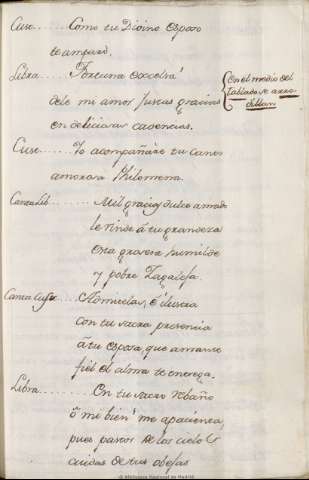 Cusr...... Como tu Divino esposo
te amparè.
Libra..... Fortuna excelsa!
dele mi amor justas gracias
en deliciosas cadencias.
en el medio del
tablado se arro-
dillan
Cusr...... Yo acompañàre tu canto
amorosa Philomena.
Canta Lib...... Mil gracias dulce amado
le rinde à tu grandeza
esta grosera humilde
y pobre Zagaleja.
Canta Cusr..... Admirelas, è ilustra
con tu sacra presencia
à tu esposa, que amante
fiel el alma te entrega.
Libra..... En tu sacro rebaño
ò mi bien! me apacienta,
pues pastor de los cielos
cuidas de tus obejas
© Biblioteca Nacional de Madrid